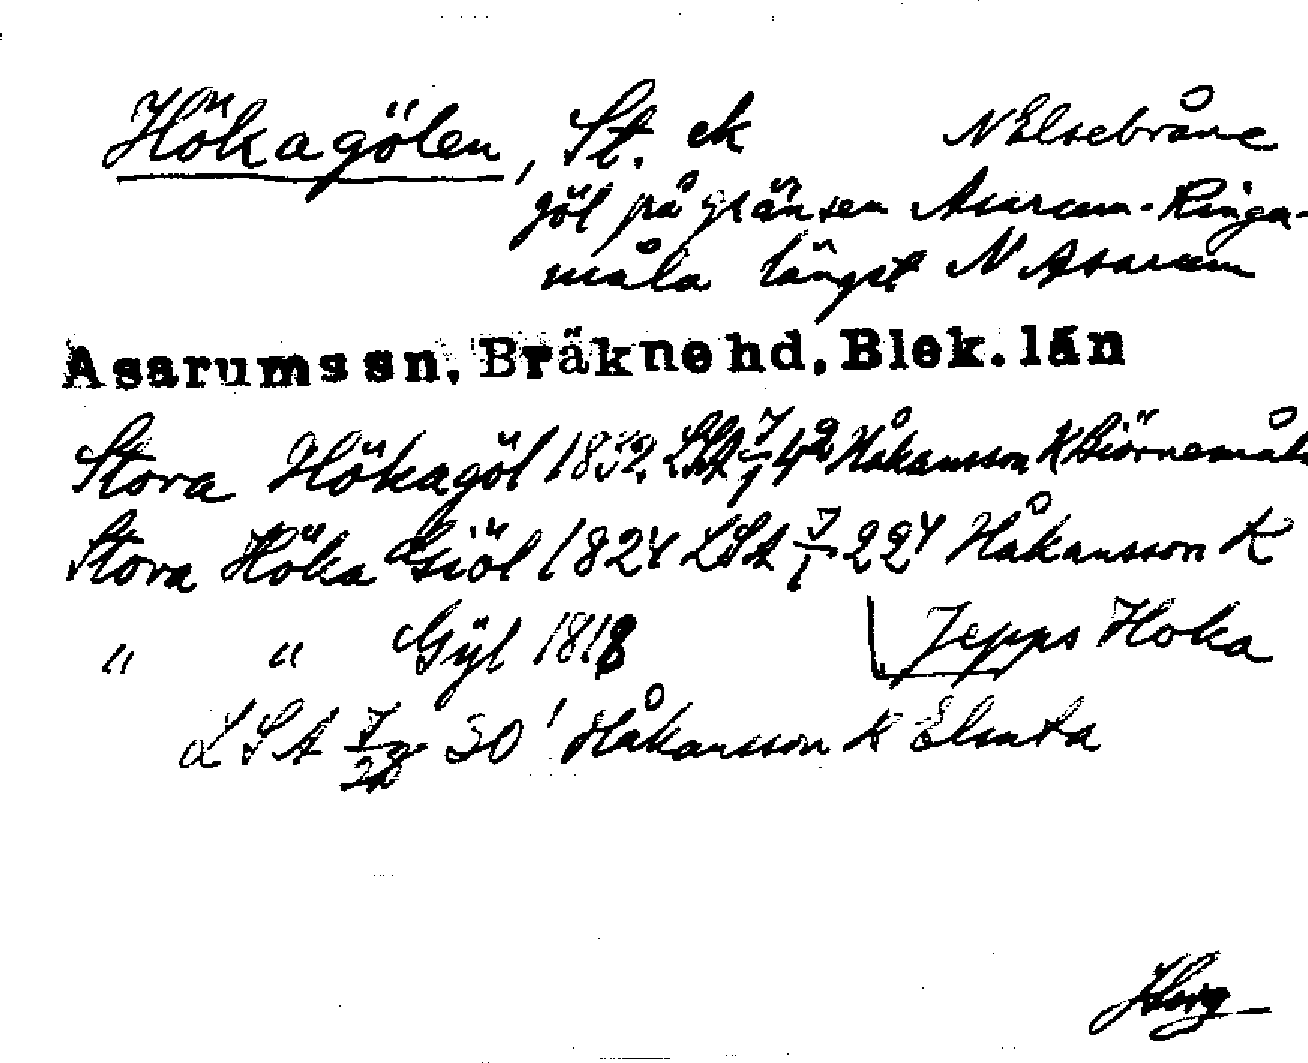 Hökagölen, St. ek N Elsebråne
göl på gränsen Asarum-Ringa-
måla längst N Asarum
Asarums sn, Bräkne hd, Blek. län
Stora Hökagöl 1832 LSA 7/1 42 Håkansson K Biörnemåla
Stora Höka Giöl 1824 LSA 7/1 224 Håkansson K
" " Gyl 1818 Jepps Hoka
LSA 30' Håkansson K